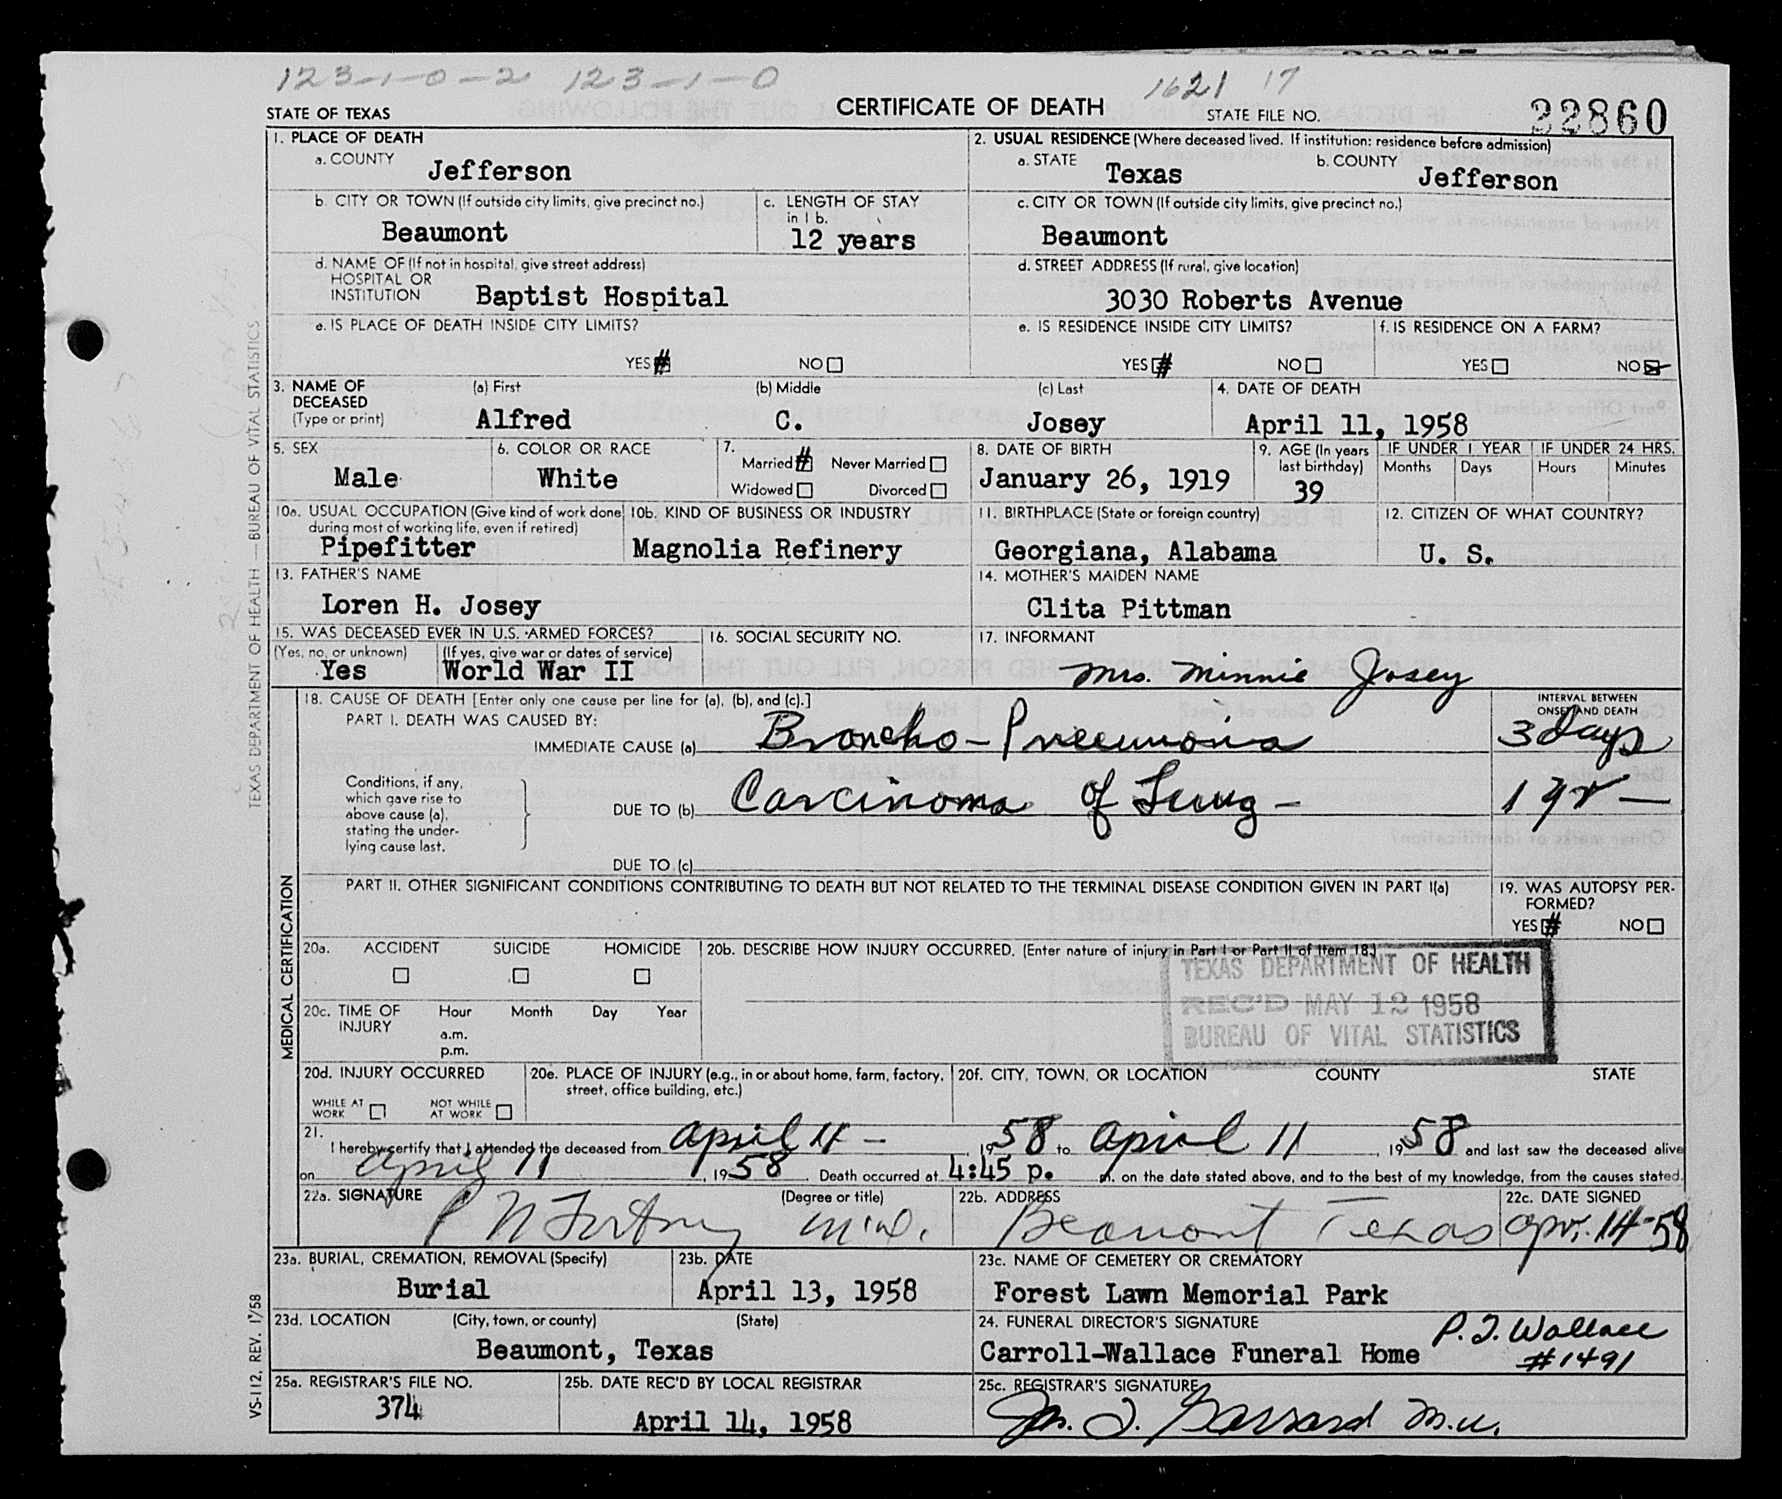 123-1-0-2 123-1-0 1621 17
STATE OF TEXAS CERTIFICATE OF DEATH STATE FILE NO. 22860
1. PLACE OF DEATH
a. COUNTY Jefferson
2. USUAL RESIDENCE (Where deceased lived. If institution: residence before admission)
a. STATE Texas b. COUNTY Jefferson
b. CITY OR TOWN (If outside city limits, give precinct no.) Beaumont
c. LENGTH OF STAY in 1 b. 12 years
c. CITY OR TOWN (If outside city limits, give precinct no.) Beaumont
d. NAME OF (If not in hospital, give street address)
HOSPITAL OR
INSTITUTION Baptist Hospital
d. STREET ADDRESS (If rural, give location)
3030 Roberts Avenue
e. IS PLACE OF DEATH INSIDE CITY LIMITS?
YES NO
e. IS RESIDENCE INSIDE CITY LIMITS?
YES NO
f. IS RESIDENCE ON A FARM?
YES NO
3. NAME OF DECEASED (Type or print)
(a) First (b) Middle (c) Last
Alfred C. Josey
4. DATE OF DEATH
April 11, 1958
5. SEX
Male
6. COLOR OR RACE
White
7. Married Never Married
Widowed Divorced
8. DATE OF BIRTH
January 26, 1919
9. AGE (In years last birthday)
39
IF UNDER 1 YEAR IF UNDER 24 HRS.
Months Days Hours Minutes
10a. USUAL OCCUPATION (Give kind of work done during most of working life, even if retired)
Pipefitter
10b. KIND OF BUSINESS OR INDUSTRY
Magnolia Refinery
11. BIRTHPLACE (State or foreign country)
Georgiana, Alabama
12. CITIZEN OF WHAT COUNTRY?
U. S.
13. FATHER'S NAME
Loren H. Josey
14. MOTHER'S MAIDEN NAME
Clita Pittman
15. WAS DECEASED EVER IN U.S. ARMED FORCES?
(Yes, no, or unknown) (If yes, give war or dates of service)
Yes World War II
16. SOCIAL SECURITY NO.
17. INFORMANT
Mrs. Minnie Josey
MEDICAL CERTIFICATION
18. CAUSE OF DEATH [Enter only one cause per line for (a), (b), and (c).]
PART I. DEATH WAS CAUSED BY:
INTERVAL BETWEEN ONSET AND DEATH
IMMEDIATE CAUSE (a) Broncho-Pneumonia 3 days
Conditions, if any, which gave rise to above cause (a), stating the underlying cause last.
DUE TO (b) Carcinoma of Lung - 1 yr -
DUE TO (c)
PART II. OTHER SIGNIFICANT CONDITIONS CONTRIBUTING TO DEATH BUT NOT RELATED TO THE TERMINAL DISEASE CONDITION GIVEN IN PART I(a)
19. WAS AUTOPSY PERFORMED?
YES NO
20a. ACCIDENT SUICIDE HOMICIDE
20b. DESCRIBE HOW INJURY OCCURRED. (Enter nature of injury in Part I or Part II of Item 18.)
TEXAS DEPARTMENT OF HEALTH
REC'D MAY 12 1958
BUREAU OF VITAL STATISTICS
20c. TIME OF INJURY Hour Month Day Year
a.m.
p.m.
20d. INJURY OCCURRED
WHILE AT WORK NOT WHILE AT WORK
20e. PLACE OF INJURY (e.g., in or about home, farm, factory, street, office building, etc.)
20f. CITY, TOWN, OR LOCATION COUNTY STATE
21. I hereby certify that I attended the deceased from April 4 - , 1958 to April 11 , 1958 and last saw the deceased alive
on April 11 , 1958. Death occurred at 4:45 p. m. on the date stated above, and to the best of my knowledge, from the causes stated.
22a. SIGNATURE (Degree or title)
P N Fortney M.D.
22b. ADDRESS
Beaumont Texas
22c. DATE SIGNED
Apr. 14-58
23a. BURIAL, CREMATION, REMOVAL (Specify)
Burial
23b. DATE
April 13, 1958
23c. NAME OF CEMETERY OR CREMATORY
Forest Lawn Memorial Park
23d. LOCATION (City, town, or county) (State)
Beaumont, Texas
24. FUNERAL DIRECTOR'S SIGNATURE
Carroll-Wallace Funeral Home P. J. Wallace
#1491
25a. REGISTRAR'S FILE NO.
374
25b. DATE REC'D BY LOCAL REGISTRAR
April 14, 1958
25c. REGISTRAR'S SIGNATURE
Jas. J. Garrard M.D.
TEXAS DEPARTMENT OF HEALTH — BUREAU OF VITAL STATISTICS
VS-112, REV. 1/58